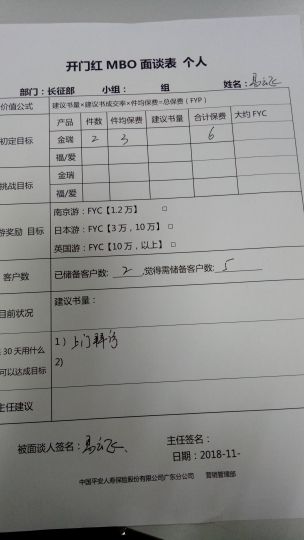 开门红 MBO 面谈表 个人
部门：长征部 小组： 组 姓名：马云飞
价值公式 建议书量×建议书成交率×件均保费=总保费（FYP）
产品 件数 件均保费 建议书量 合计保费 大约 FYC
初定目标 金瑞 2 3 6
福/爱
挑战目标 金瑞
福/爱
游奖励 目标 南京游：FYC【1.2 万】 □
日本游：FYC【3 万，10 万】 □
英国游：FYC【10 万，以上】 □
客户数 已储备客户数: 2 ,觉得需储备客户数: 5
目前状况 建议书量：
30 天用什么 1）上门拜访
可以达成目标 2)
主任建议
被面谈人签名：马云飞 主任签名：
日期：2018-11-
中国平安人寿保险股份有限公司广东分公司 营销管理部